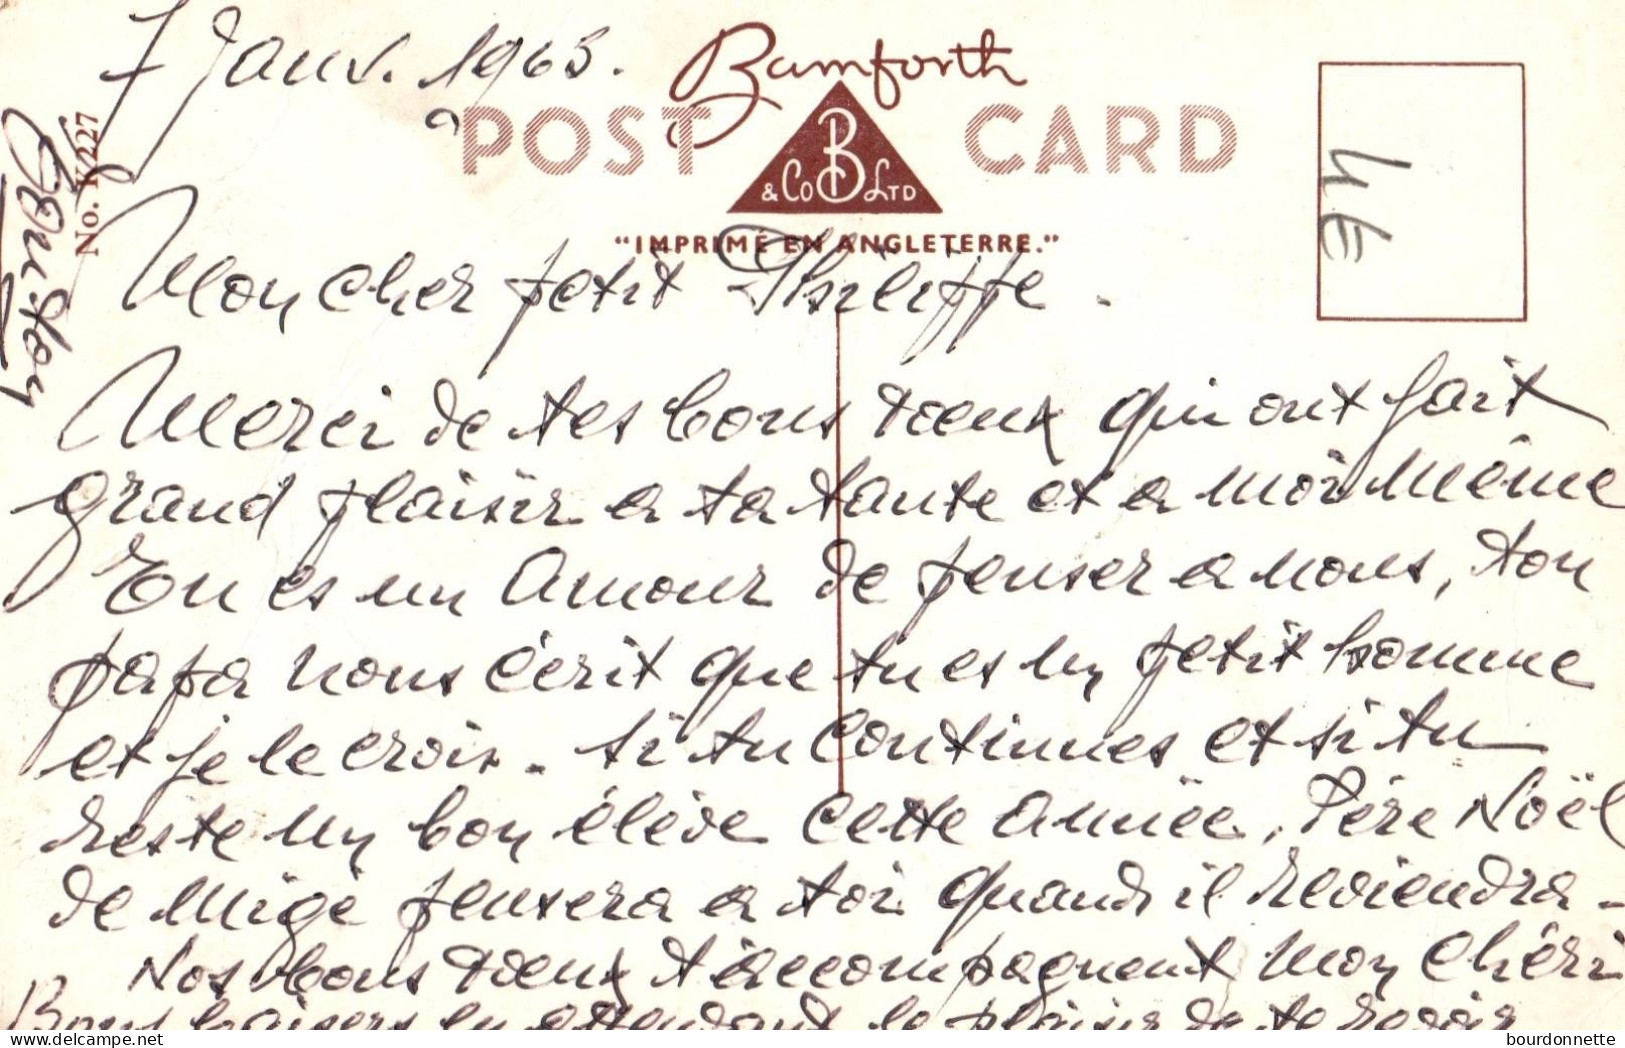 7 Janv. 1965.
Bamforth
POST CARD
& Co B LTD
"IMPRIMÉ EN ANGLETERRE."
No. K227
4E
Mon cher petit Philippe.
Merci de tes bons voeux qui ont fait
grand plaisir a ta tante et a moi Même
Tu es un amour de penser a nous, ton
papa nous écrit que tu es un petit homme
et je le crois. Si tu continues et si tu
reste un bon élève cette année, Père Noël
de Migé pensera a toi quand il reviendra -
Nos bons voeux t'accompagnent Mon Chéri
Bons baisers en attendant le plaisir de te revoir
bourdonnette